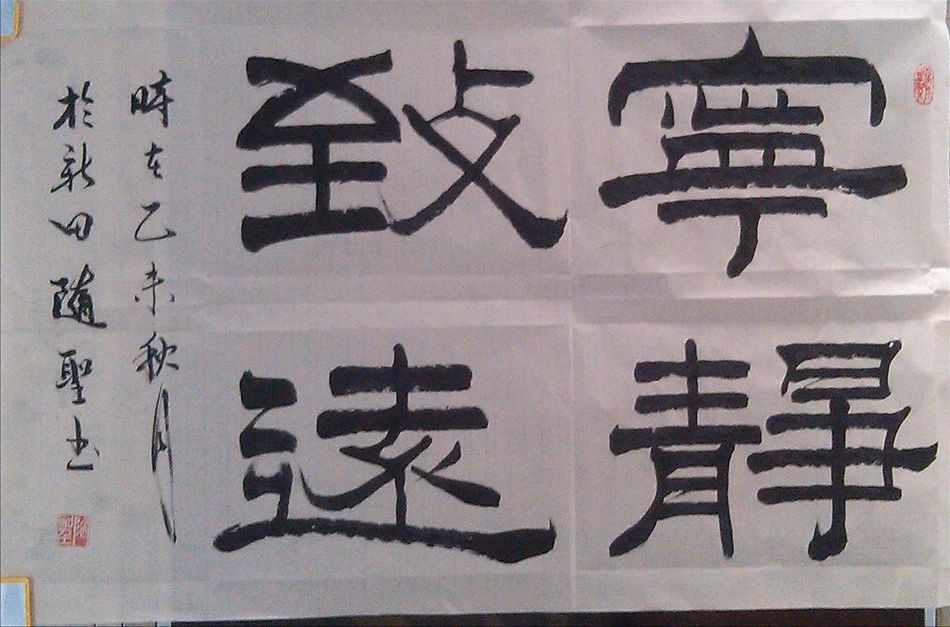 寧靜
致遠
時在乙未秋月
於新田隨聖书